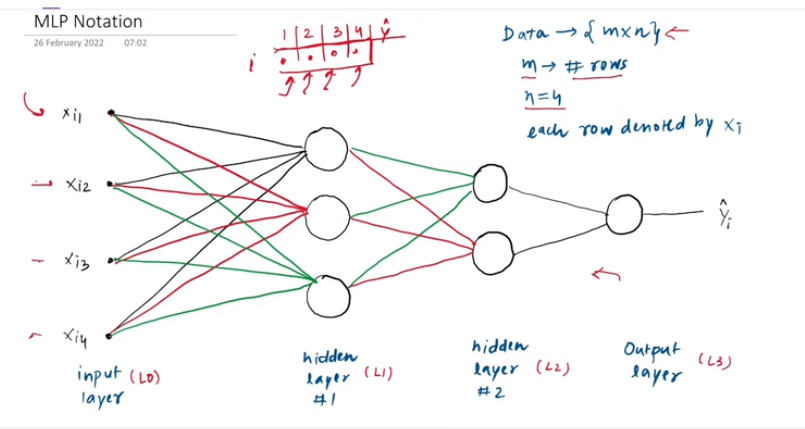 MLP Notation
26 February 2022 07:02
1 2 3 4 ŷ
i
Data → { m x n } ←
m → # rows
n = 4
each row denoted by xi
xi1
xi2
xi3
xi4
ŷi
input (L0)
layer
hidden
layer (L1)
#1
hidden
layer (L2)
#2
Output
layer (L3)